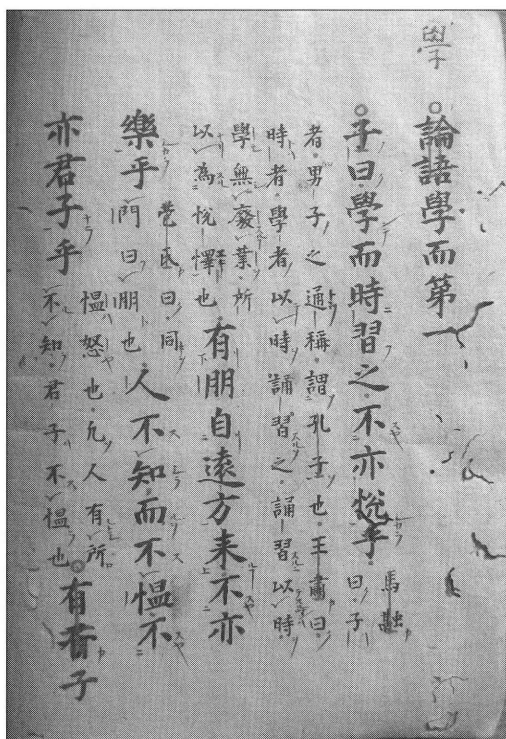 學
論語學而第一
子曰學而時習之不亦悅乎馬融曰子
者男子之通稱謂孔子也王肅曰
時者學者以時誦習之誦習以時
學無廢業所以為悅懌也有朋自遠方来不亦
樂乎苞氏曰同門曰朋也人不知而不慍不
亦君子乎慍怒也凡人有所不知君子不慍也有子